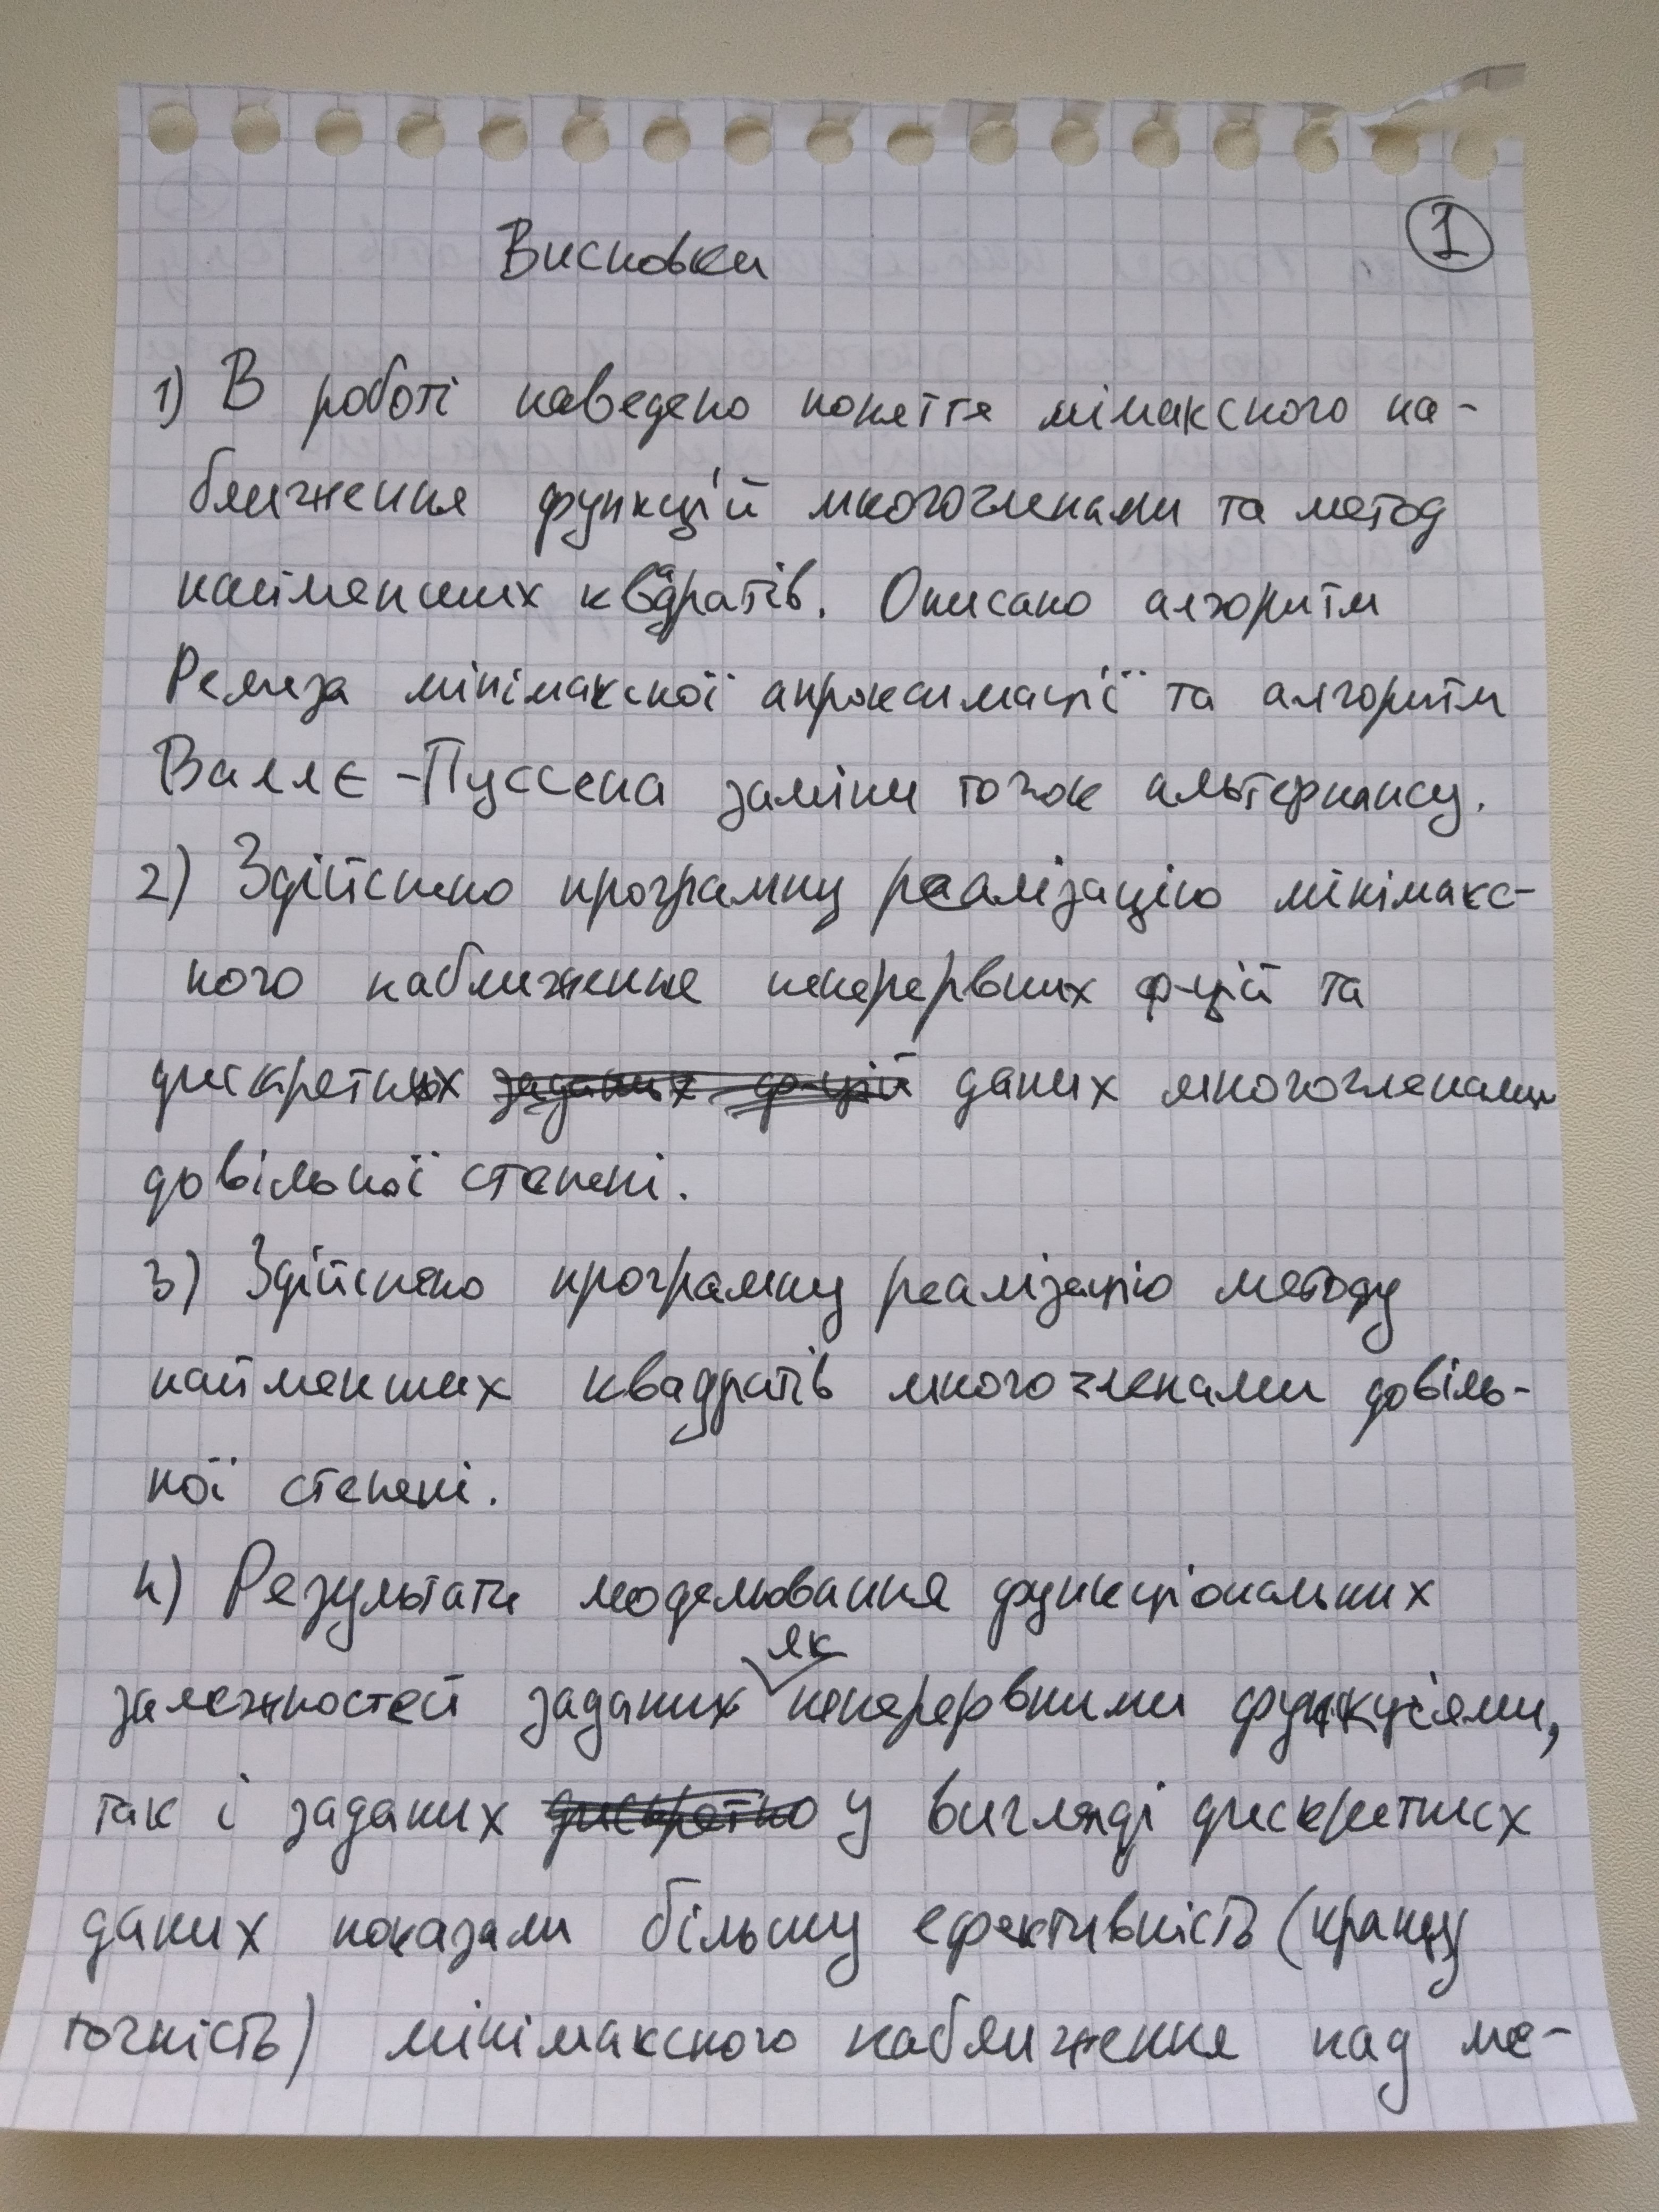 1
Висновки
1) В роботі наведено поняття мімаксного на-
ближення функцій многочленами та метод
найменших квадратів. Описано алгоритм
Ремеза мінімаксної апроксимації та алгоритм
Валлє-Пуссена заміни точок альтернансу.
2) Здійснено програмну реалізацію мінімакс-
ного наближення неперервних ф-цій та
дискретних заданих ф-цій даних многочленами
довільної степені.
3) Здійснено програмну реалізацію методу
найменших квадратів многочленами довіль-
ної степені.
4) Результати моделювання функціональних
як
залежностей заданих неперервними функціями,
так і заданих дискретно у вигляді дискретних
даних показали більшу ефективність (кращу
точність) мінімаксного наближення над ме-